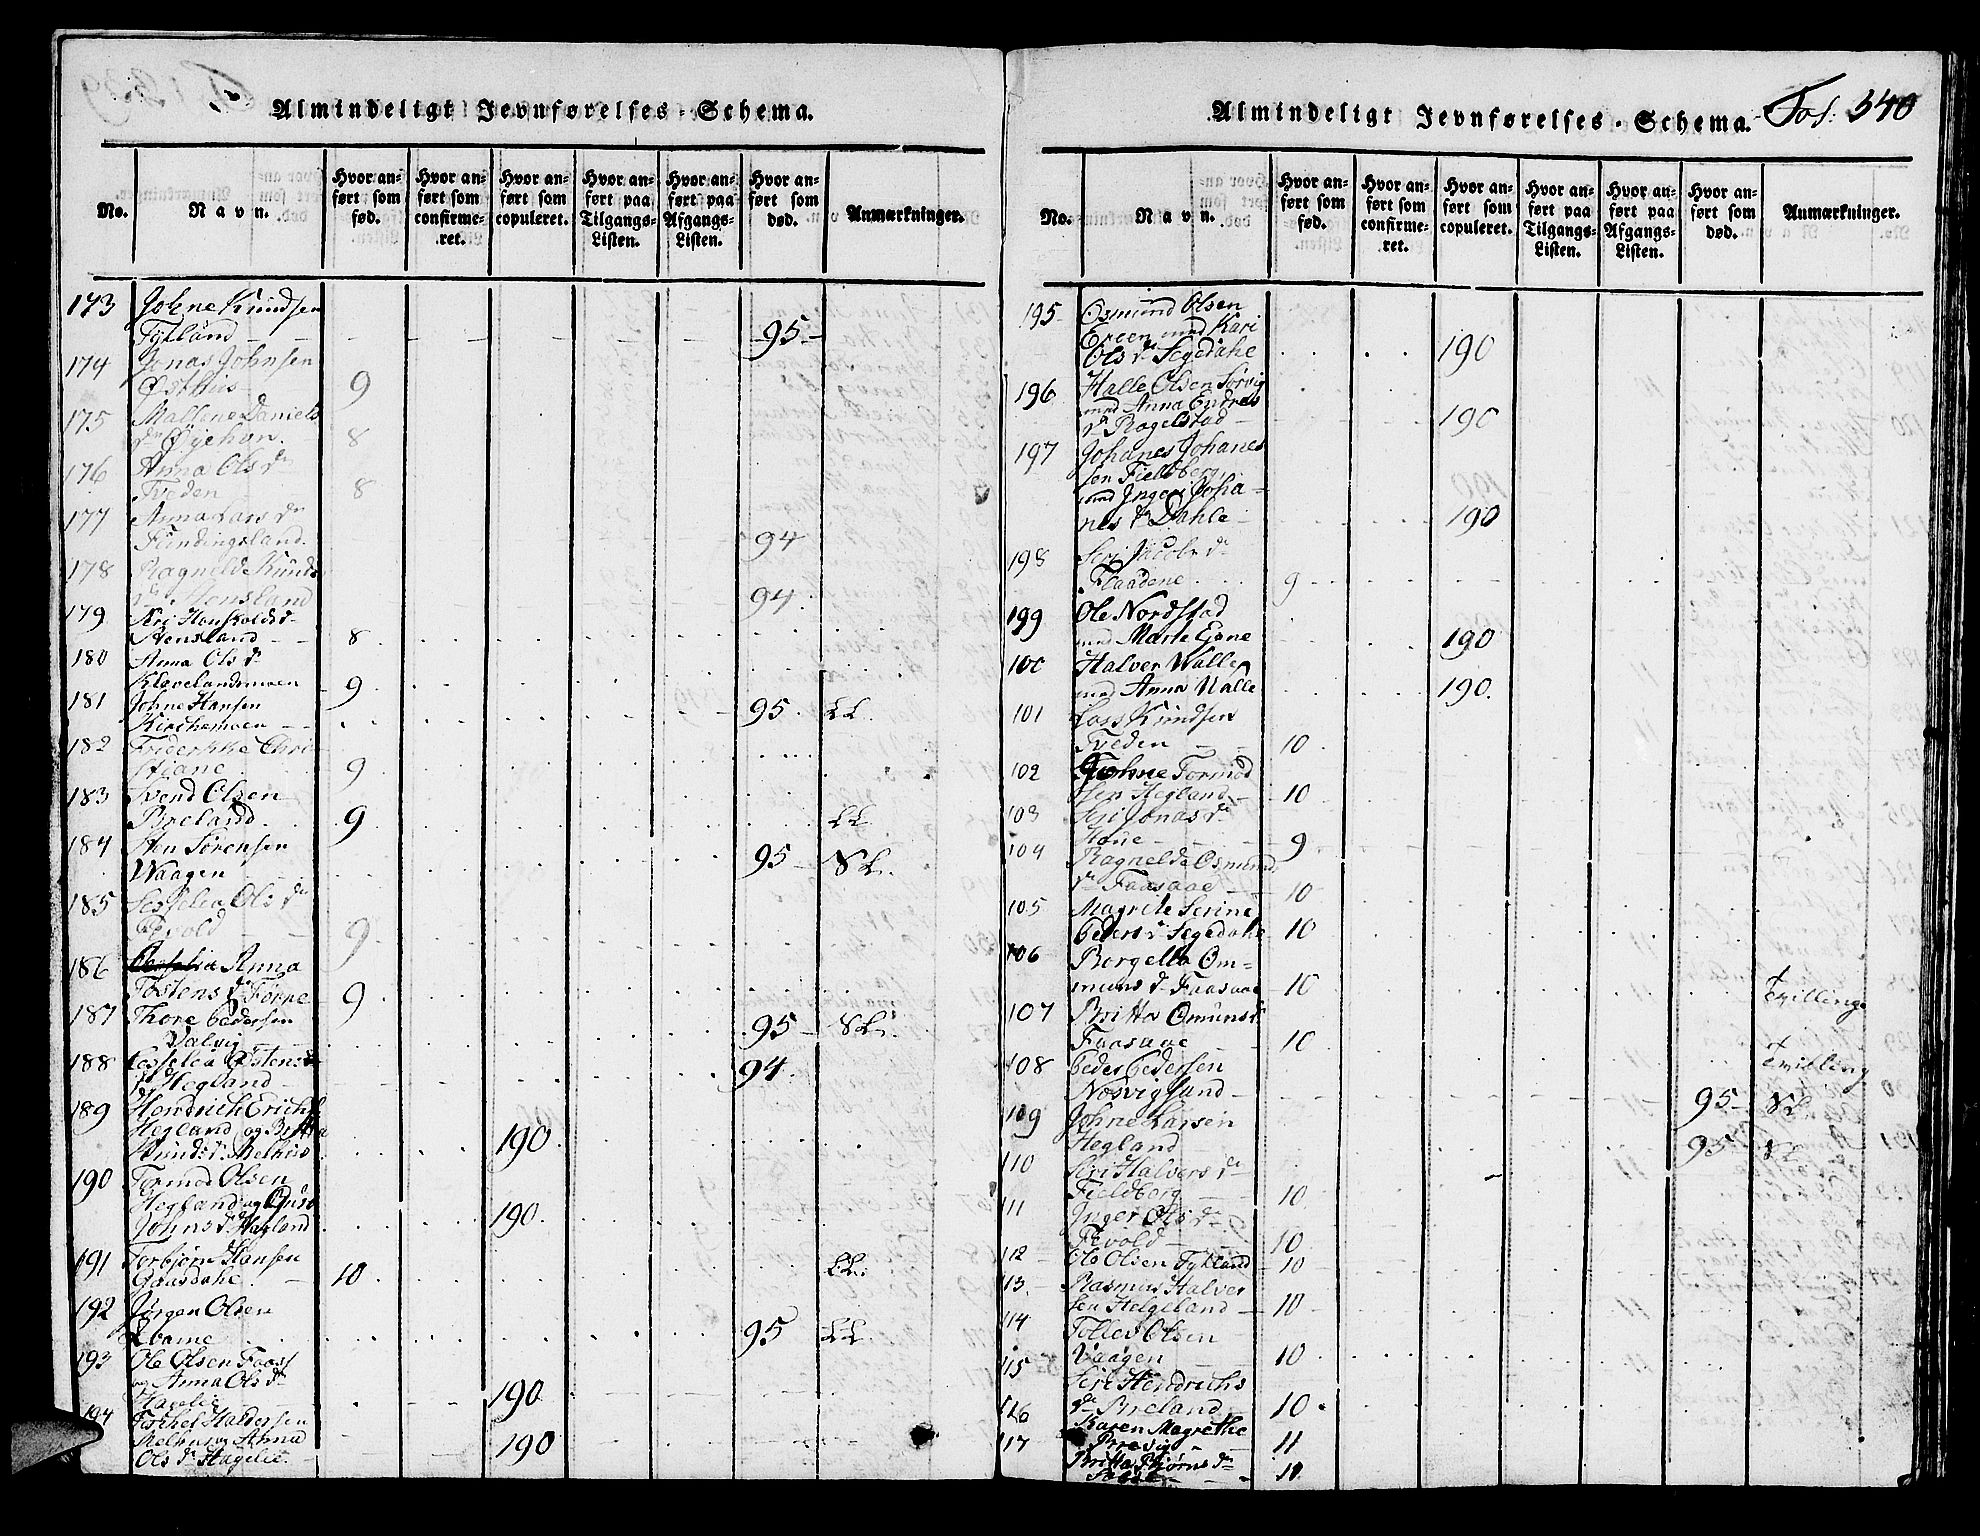 Almindeligt Jevnførelses-Schema.
No.
Navn.
Hvor anført som fød.
Hvor anført som confirmeret.
Hvor anført som copuleret.
Hvor anført paa Tilgangs-Listen.
Hvor anført paa Afgangs-Listen.
Hvor anført som død.
Anmærkninger.
173 Johne Knudsen
Tykland 95
174 Jonas Johnsen
Østhus 9
175 Mallene Daniels
dr Øyehon. 8
176 Anna Ols dr
Tveden 8
177 Anna Lars dr
Flindingsland. 94
178 Ragnelde Knuds
dr Honsland 94.
179 Siri Honskolds dr
Stensland 8
180 Anna Ols dr
Klovelandsmoen 9
181 Johne Hansen
Kirchemoen 95. LL.
182 Friderikke Chri-
stiane 9
183 Svend Olsen
Breland. 9 LL.
184 Sten Sørensen
Waagen 95 SL.
185 Sesselea Ols dr
Tevold 9
186 Anna
Tostens dr Førne 9
187 Thore Pedersen
Valvig 95 SL.
188 Cesselea Østens
dr Hegland 94.
189 Hendrich Erichs
Hegland og Britta
Knuds dr Melhus. 190.
190 Tormod Olsen
Hegland og Guro
Johns dr Hegland 190.
191 Torbjørn Hansen
Gaasdahe 10. LL.
192 Jørgen Olsen
Lbame 95 LL.
193 Ole Olsen Faass
og Anna Ols dr
Hagelie 190.
194 Torkel Haldorsen
Melhus og Anna
Ols dr Hagelie. 190
Almindeligt Jevnførelses-Schema.
Fol: 540
No.
Navn.
Hvor anført som fød.
Hvor anført som confirmeret.
Hvor anført som copuleret.
Hvor anført paa Tilgangs-Listen.
Hvor anført paa Afgangs-Listen.
Hvor anført som død.
Anmærkninger.
195 Osmund Olsen
Ereen med Kari
Ols dr Segedahe 190
196 Halle Olsen Sørvig
med Anna Endres
dr Rogelstad 190
197 Johanes Johanes
sen Fieldberg
med Inger Joha-
nes dr Dahle 190
198 Seri Jacobs dr
Flaadene 9
199 Ole Nordstad
med Marte Egne 190
100 Halver Walle
med Anna Valle 190.
101 Lars Knudsen
Tveden 10.
102 Johne Tormod
sen Hegland 10
103 Seri Jonas dr
Hone 9
104 Ragnelde Osmund
dr Faasaae 10
105 Magrete Serine
Peders dr Segedahe 10
106 Borgella Om-
munds dr Faasaae 10 Tvillinge
107 Britta Omunds dr
Faasaae 10 Tvilling
108 Peder Pedersen
Nosvigsand 95 SL
109 Johne Larsen
Hegland 95 SL
110 Seri Halvers dr
Fieldberg 10
111 Inger Ols dr
Tevold 10
112 Ole Olsen Tykland 10
113. Rasmus Halver
sen Helgeland 10
114 Tolles Olsen
Vaagen 10
115 Seri Hendrichs
dr Breland 10.
116 Karen Magrethe
Brevig 11
117 Britta Bjørns dr
11